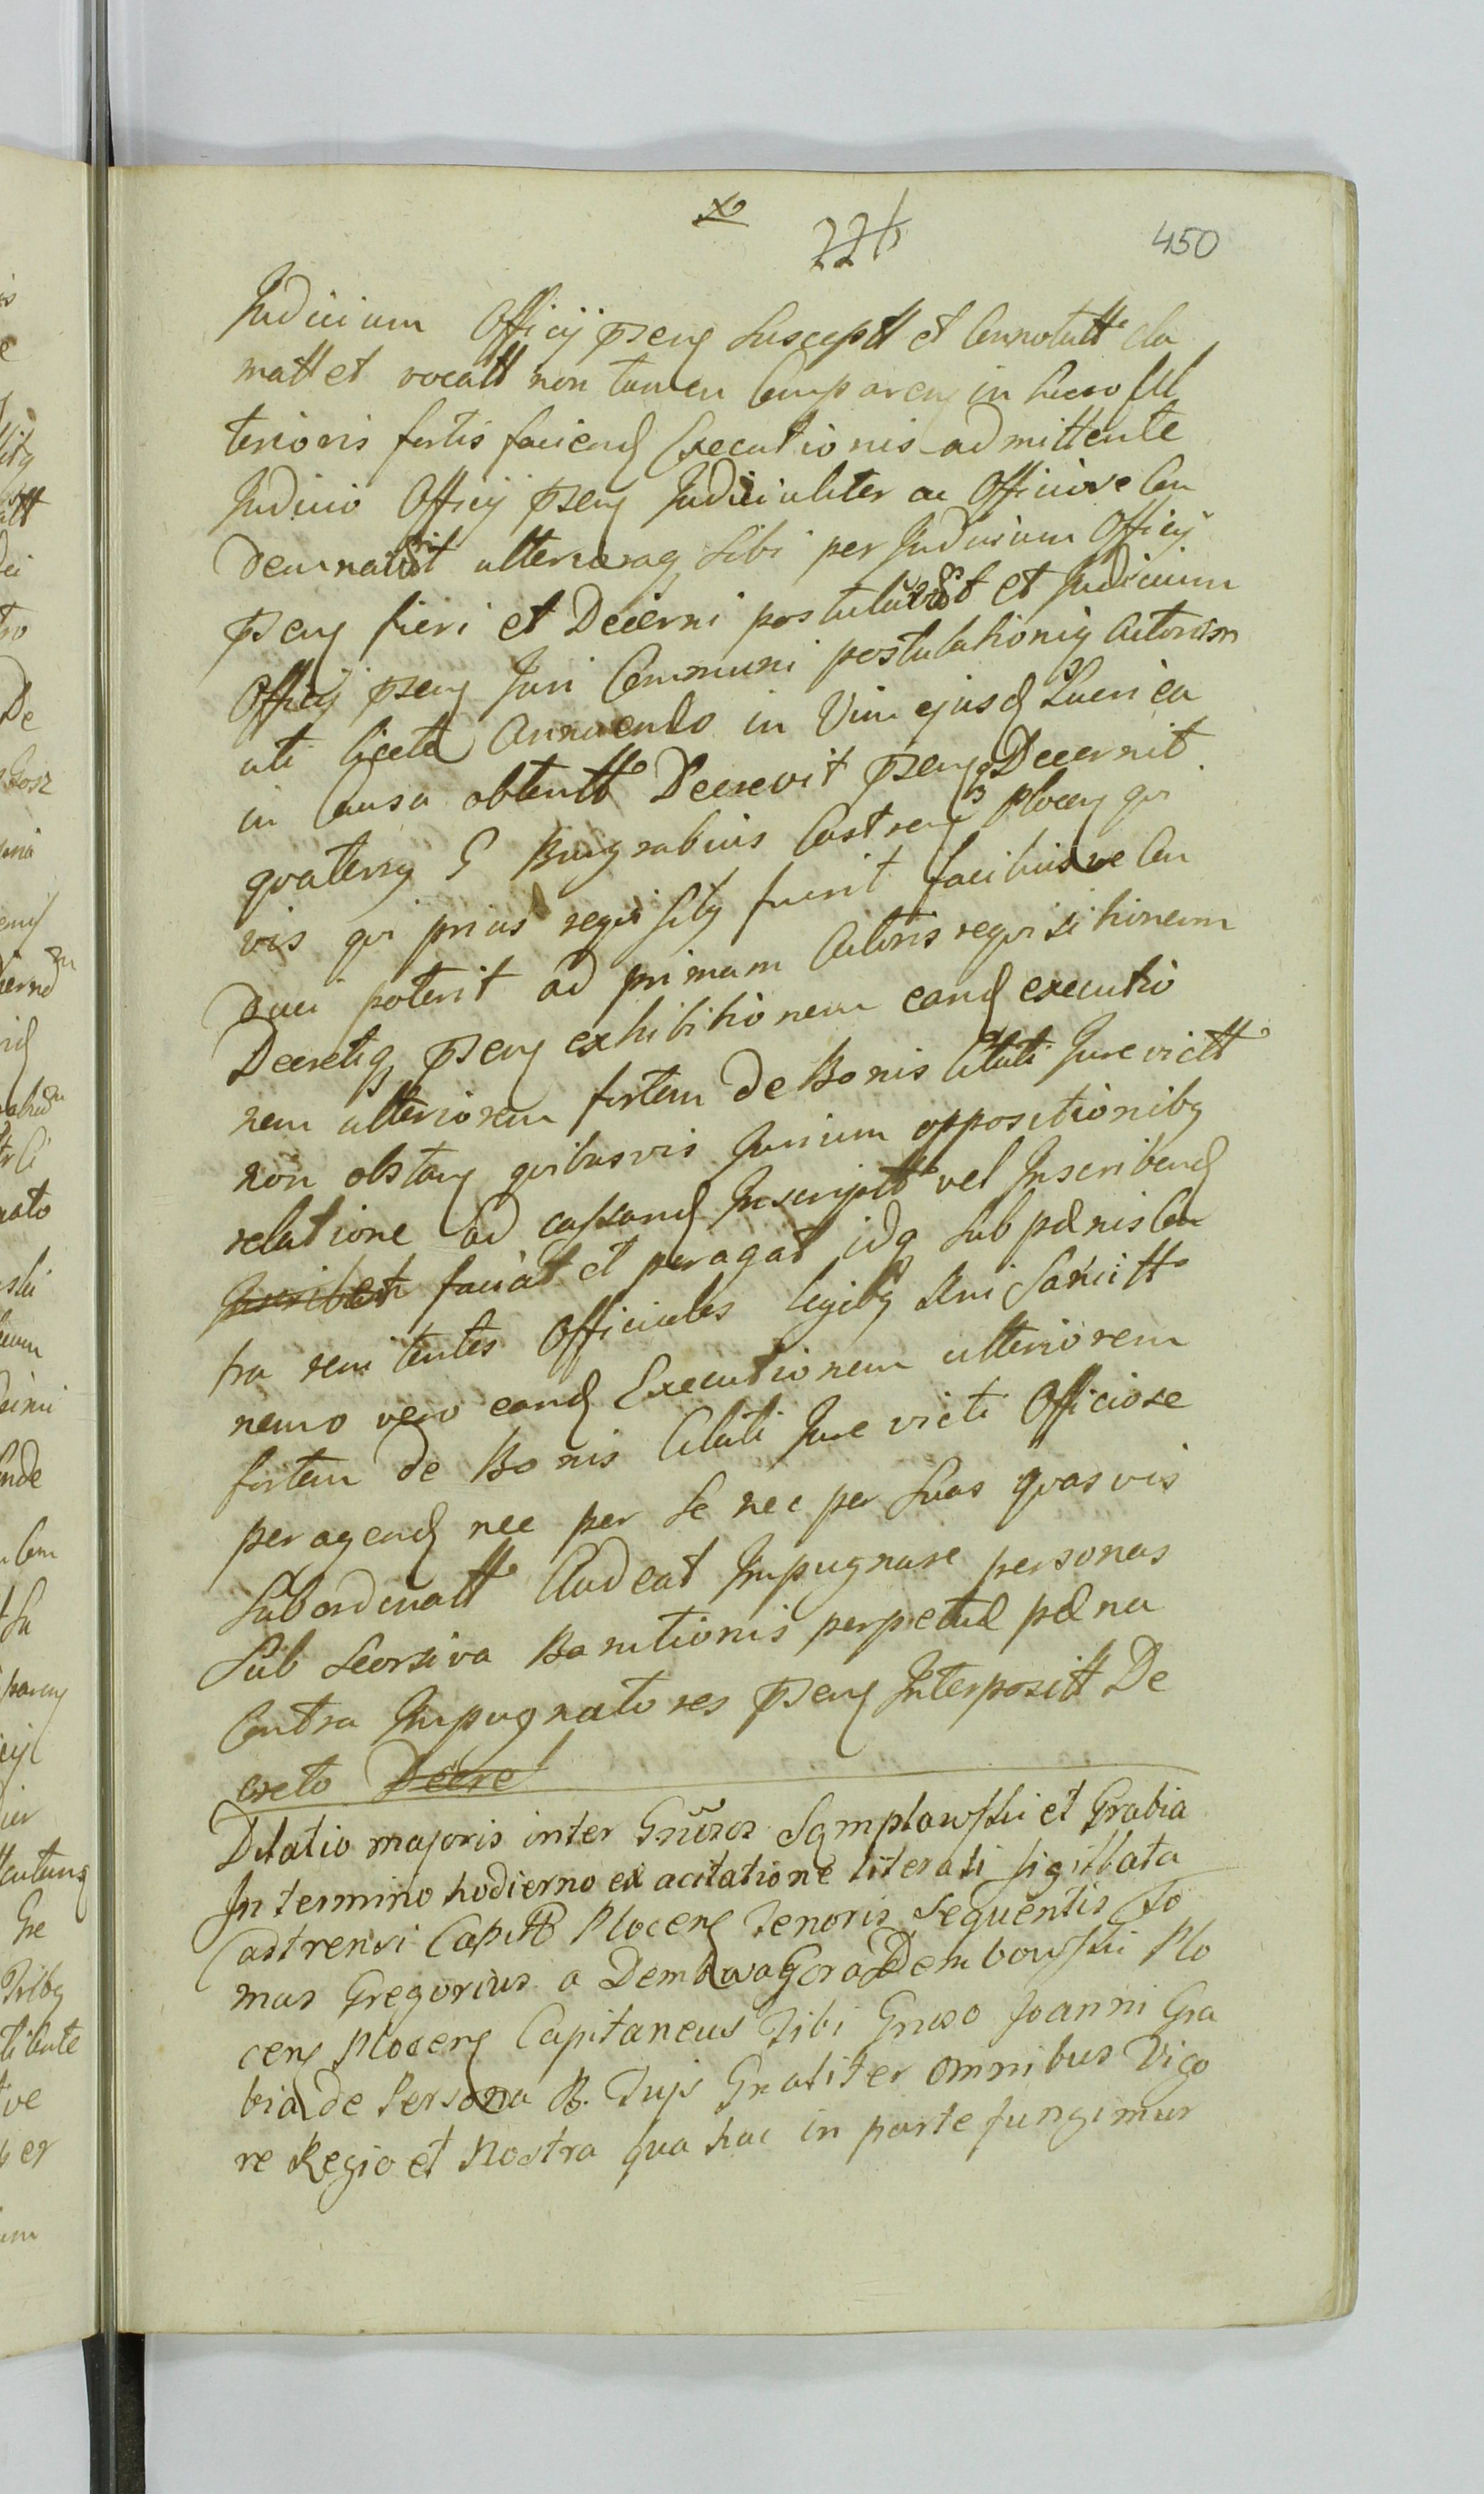 450
Judicium Officij pseng Susceptt et Connotatt cla
matt et vocatt non tamen Compareng in lucro Ul
terioris fortis faciend Executionis admittente
Judicio Officij pseng Judicialiter ac Officiose Con
demnavit ulterioraq Sibi per Judicium Officij
pseng fieri et Decerni postulavit et Judicium
Officij pseng Juri Communi postulationiq Actorum
uti licitæ Annuendo in Vim ejusd Lucri ea
in Causa obtentt Decrevit pseng Decernit
quateng G Burgrabius Castreng Ploceng qui
vis qui prius requisitg fuerit faciliusve Con
duci poterit ad primam Actoris requisitionem
Decretiq pseng exhibitionem eand executio
nem ulteriorem fortem de Bonis Citati Jure victt
non obstang quibusvis Jurium oppositionibg
relatione ad cassand Inscriptt vel Inscribend
faciat et peragat idq sub pænis Con
tra renitentes Officiales legibg Regni Sancitt
nemo vero eand Executionem ulteriorem
fortem de Bonis Citati Jure victi Officiose
peragend nec per Se nec per Suas quasvis
Subordinatt Audeat Impugnare personas
Sub Seorsiva Banitionis perpetuæ pæna
Contra Impugnatores pseng Interpositt De
creto Decre
Dilatio majoris inter Gnosos Sąmpławski et Grabia
In termino hodierno ex acitatione literali sigillata
Castrensi Capitt Ploceng Tenoris Sequentis To
mas Gregorius a Dembowagora Dembowski Plo
ceng Ploceng Capitaneus Tibi Gnoso Joanni Gra
bia de Persona B. Tujs Gnaliter omnibus Vigo
re Regio et Nostra qua hac in parte fungimur